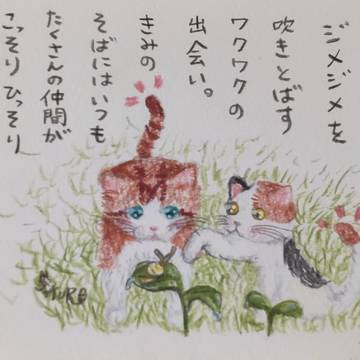 ジメジメを
吹きとばす
ワクワクの
出会い。
きみの
そばにはいつも
たくさんの仲間が
こっそりひっそり